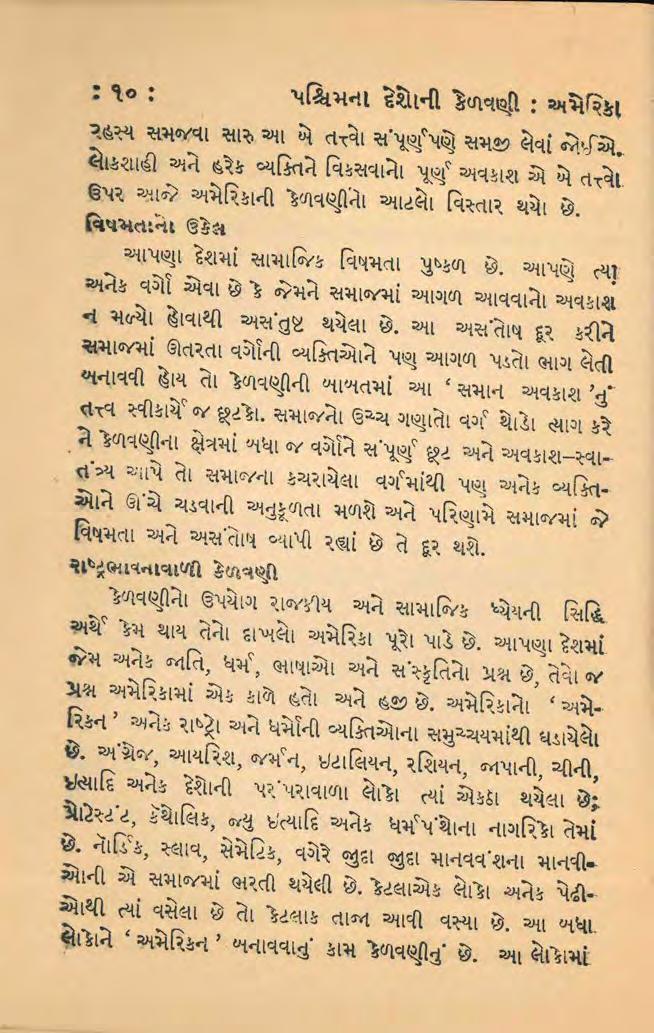 : ૧૦ : પશ્ચિમના દેશોની કેળવણી : અમેરિકા
રહસ્ય સમજવા સારુ આ બે તત્ત્વો સંપૂર્ણપણે સમજી લેવાં જોઈએ.
લોકશાહી અને હરેક વ્યક્તિને વિકસવાનો પૂર્ણ અવકાશ એ બે તત્ત્વો
ઉપર આજે અમેરિકાની કેળવણીનો આટલો વિસ્તાર થયો છે.
વિષમતાનો ઉકેલ
આપણા દેશમાં સામાજિક વિષમતા પુષ્કળ છે. આપણે ત્યાં
અનેક વર્ગો એવા છે કે જેમને સમાજમાં આગળ આવવાનો અવકાશ
ન મળ્યો હોવાથી અસંતુષ્ટ થયેલા છે. આ અસંતોષ દૂર કરીને
સમાજમાં ઊતરતા વર્ગોની વ્યક્તિઓને પણ આગળ પડતો ભાગ લેતી
બનાવવી હોય તો કેળવણીની બાબતમાં આ ‘ સમાન અવકાશ ’નું
તત્ત્વ સ્વીકાર્યે જ છૂટકો. સમાજનો ઉચ્ચ ગણાતો વર્ગ થોડો ત્યાગ કરે
ને કેળવણીના ક્ષેત્રમાં બધા જ વર્ગોને સંપૂર્ણ છૂટ અને અવકાશ–સ્વા-
તંત્ર્ય આપે તો સમાજના કચરાયેલા વર્ગમાંથી પણ અનેક વ્યક્તિ-
ઓને ઊંચે ચડવાની અનુકૂળતા મળશે અને પરિણામે સમાજમાં જે
વિષમતા અને અસંતોષ વ્યાપી રહ્યાં છે તે દૂર થશે.
રાષ્ટ્રભાવનાવાળી કેળવણી
કેળવણીનો ઉપયોગ રાજકીય અને સામાજિક ધ્યેયની સિદ્ધિ
અર્થે કેમ થાય તેનો દાખલો અમેરિકા પૂરો પાડે છે. આપણા દેશમાં
જેમ અનેક જાતિ, ધર્મ, ભાષાઓ અને સંસ્કૃતિનો પ્રશ્ન છે, તેવો જ
પ્રશ્ન અમેરિકામાં એક કાળે હતો અને હજી છે. અમેરિકાનો ‘ અમે-
રિકન ’ અનેક રાષ્ટ્રો અને ધર્મોની વ્યક્તિઓના સમુચ્ચયમાંથી ઘડાયેલો
છે. અંગ્રેજ, આયરિશ, જર્મન, ઇટાલિયન, રશિયન, જાપાની, ચીની,
ઇત્યાદિ અનેક દેશોની પરંપરાવાળા લોકો ત્યાં એકઠા થયેલા છે;
પ્રોટેસ્ટંટ, કૅથોલિક, જ્યુ ઇત્યાદિ અનેક ધર્મપંથોના નાગરિકો તેમાં
છે. નૉર્ડિક, સ્લાવ, સેમેટિક, વગેરે જુદા જુદા માનવવંશના માનવી-
ઓની એ સમાજમાં ભરતી થયેલી છે. કેટલાએક લોકો અનેક પેઢી-
ઓથી ત્યાં વસેલા છે તો કેટલાક તાજા આવી વસ્યા છે. આ બધા
લોકોને ‘ અમેરિકન ’ બનાવવાનું કામ કેળવણીનું છે. આ લોકોમાં